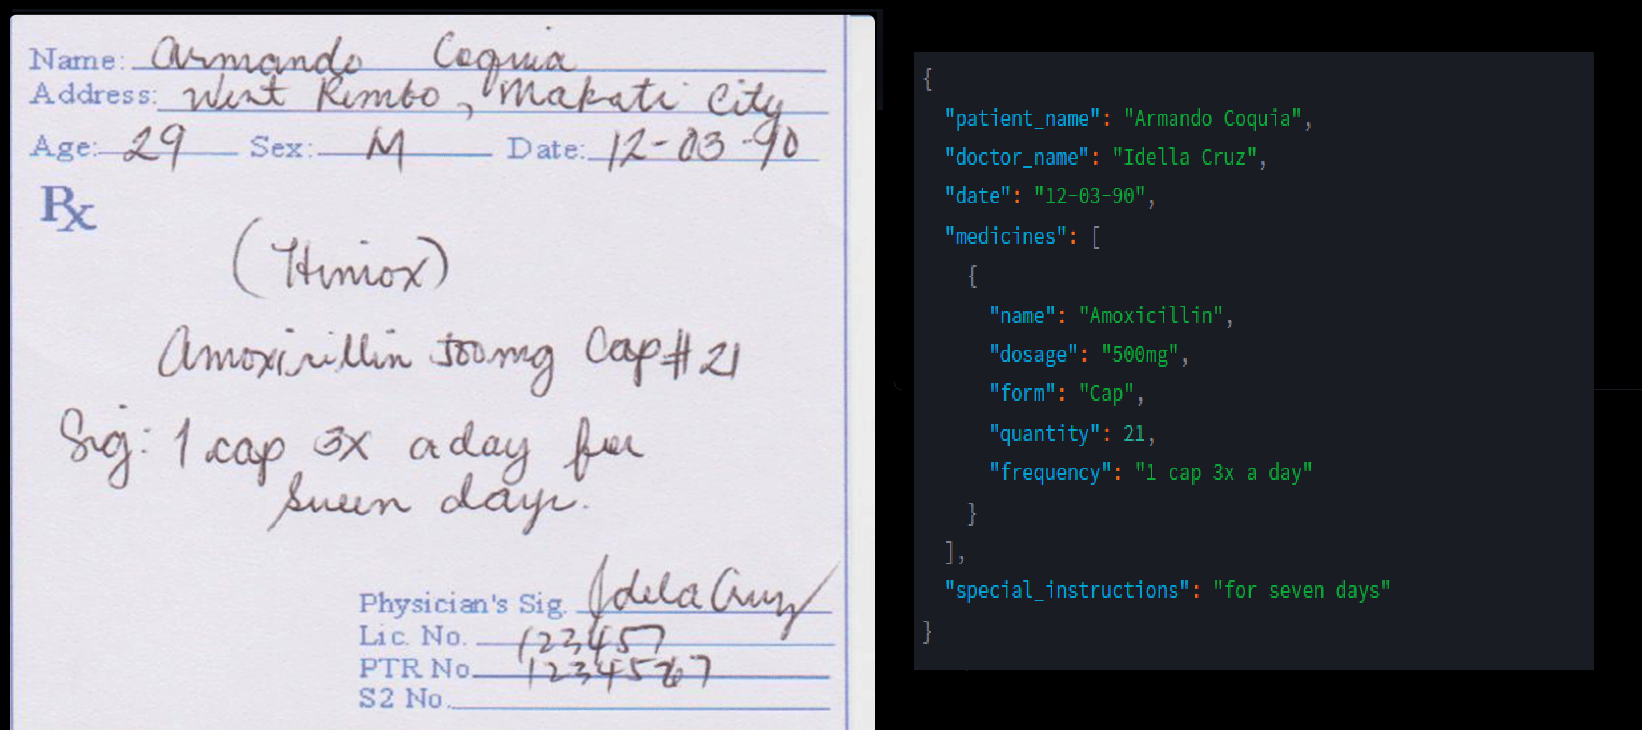 Name: Armando Coquia
Address: West Rembo, Makati City
Age: 29 Sex: M Date: 12-03-90
Rx
(Himox)
Amoxicillin 500mg Cap #21
Sig: 1 cap 3x a day for
seven days.
Physician's Sig. Idela Cruz
Lic. No. 123457
PTR No. 1234567
S2 No.
{
"patient_name": "Armando Coquia",
"doctor_name": "Idella Cruz",
"date": "12-03-90",
"medicines": [
{
"name": "Amoxicillin",
"dosage": "500mg",
"form": "Cap",
"quantity": 21,
"frequency": "1 cap 3x a day"
}
],
"special_instructions": "for seven days"
}